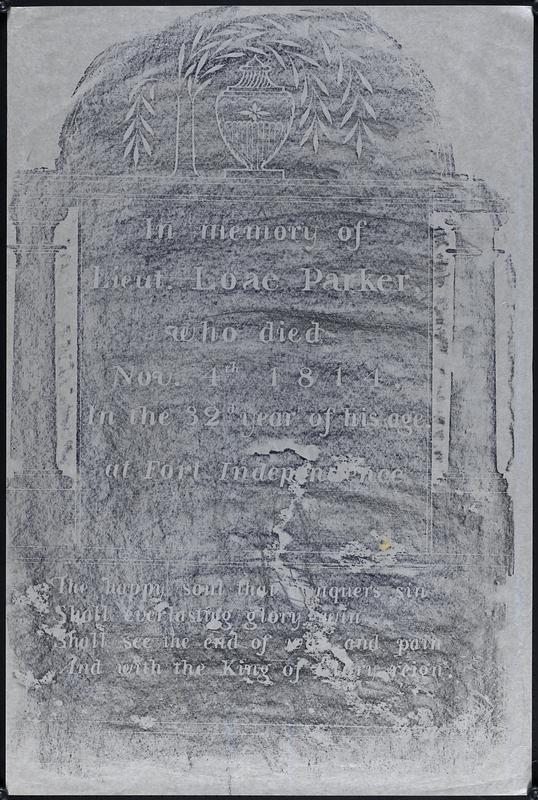 In memory of
Lieut. Loae Parker,
who died
Nov. 4th 1814,
In the 32d year of his age
at Fort Independence
The happy soul that conquers sin
Shall everlasting glory win
Shall see the end of and pain
And with the King of glory reign.